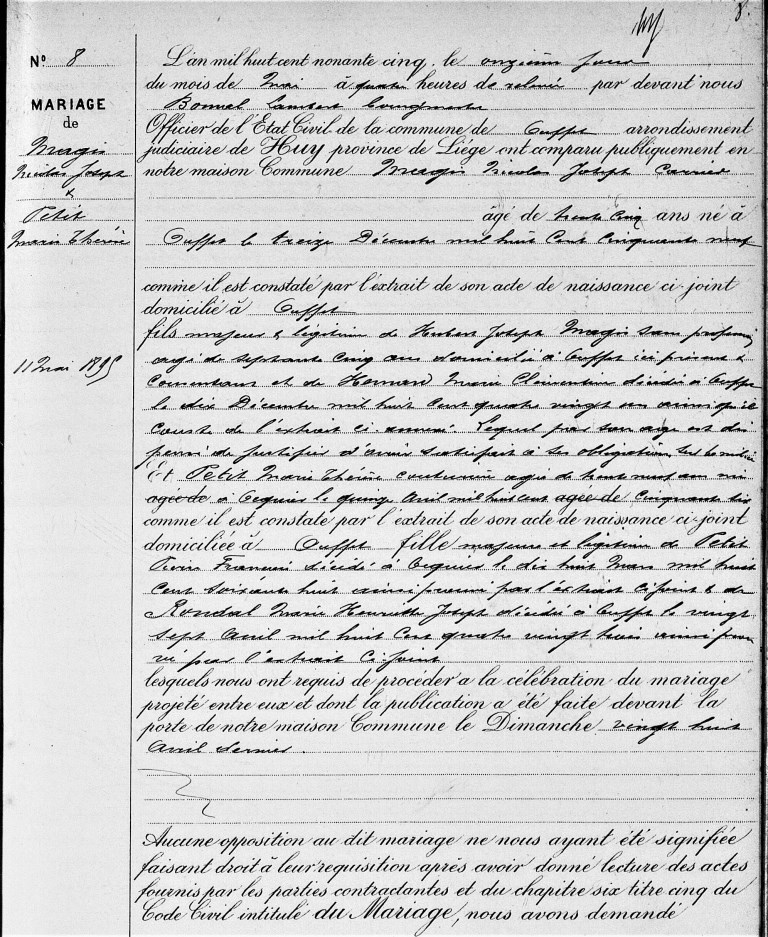 8.
N° 8
MARIAGE
de
Magis
Nicolas Joseph
&
Petit
Marie Thérèse
11 mai 1895
L'an mil huit cent nonante cinq, le onzième jour
du mois de Mai à quatre heures de relevée par devant nous
Bonmel Lambert Bourgmestre
Officier de l'Etat Civil de la commune de Ouffet arrondissement
judiciaire de Huy province de Liége ont comparu publiquement en
notre maison Commune Magis Nicolas Joseph Carrier
âgé de trente cinq ans né à
Ouffet le treize Décembre mil huit Cent Cinquante neuf
comme il est constaté par l'extrait de son acte de naissance ci-joint
domicilié à Ouffet
fils majeur & légitime de Hubert Joseph Magis sans profession
agé de septante cinq ans domicilié à Ouffet ici présent &
Consentant et de Marie Clémentine décédée à Ouffet
le dix Décembre mil huit Cent quatre vingt un ainsi qu'il
Conste de l'extrait ci annexé. Lequel par son age est dis
pensé de justifier d'avoir satisfait à ses obligations sur la milice
Et Petit Marie Thérèse couturière agée de trente neuf ans née
agée de à le quinze Avril mil huit cent agée de Cinquante six
comme il est constaté par l'extrait de son acte de naissance ci-joint
domiciliée à Ouffet fille majeure et légitime de Petit
François décédé à le dix huit Mars mil huit
Cent soixante huit ainsi prouvé par l'extrait ci joint & de
Rondal Marie Henriette Joseph décédée à Ouffet le vingt
sept Avril mil huit Cent quatre vingt trois ainsi prou
vé par l'extrait Ci-joint
lesquels nous ont requis de procéder a la célébration du mariage
projeté entre eux et dont la publication a été faite devant la
porte de notre maison Commune le Dimanche vingt huit
Avril dernier.
Aucune opposition au dit mariage ne nous ayant été signifiée
faisant droit à leur requisition après avoir donné lecture des actes
fournis par les parties contractantes et du chapitre six titre cinq du
Code Civil intitulé du Mariage, nous avons demandé